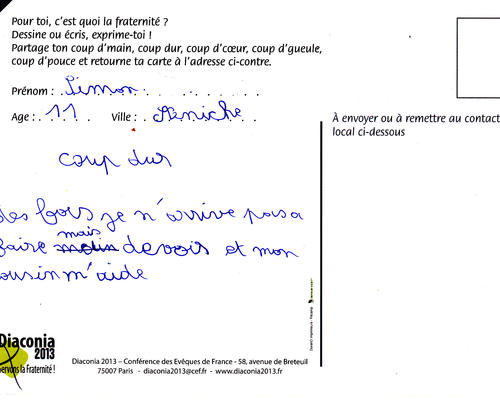 Pour toi, c'est quoi la fraternité ?
Dessine ou écris, exprime-toi !
Partage ton coup d'main, coup dur, coup d'cœur, coup d'gueule,
coup d'pouce et retourne ta carte à l'adresse ci-contre.
Prénom : Simon
Age : 11 Ville :
À envoyer ou à remettre au contact
local ci-dessous
coup dur
des fois je n'arrive pas a
faire mais devoirs et mon
ousin m'aide
Diaconia
2013
ervons la Fraternité !
Diaconia 2013 – Conférence des Evêques de France - 58, avenue de Breteuil
75007 Paris - diaconia2013@cef.fr - www.diaconia2013.fr